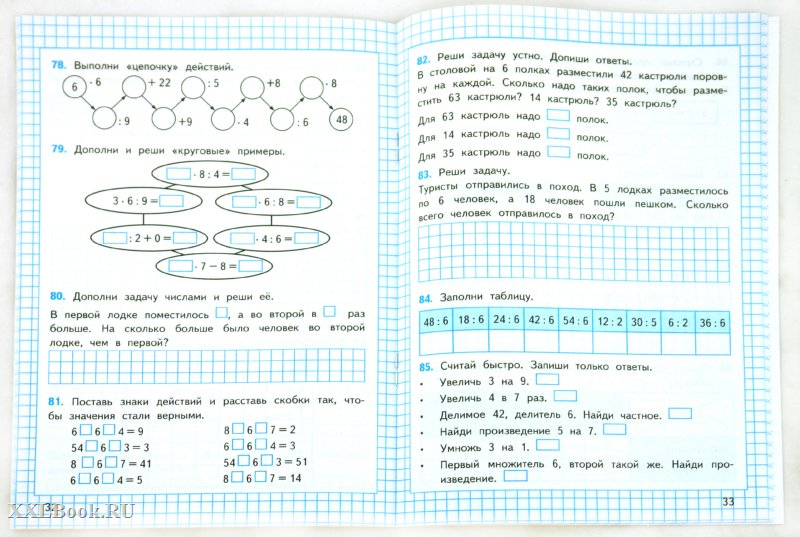 78. Выполни «цепочку» действий.
6 · 6 + 22 : 5 +8 · 8
: 9 +9 · 4 : 6 48
79. Дополни и реши «круговые» примеры.
· 8 : 4 =
3 · 6 : 9 = · 6 : 8 =
: 2 + 0 = · 4 : 6 =
· 7 − 8 =
80. Дополни задачу числами и реши её.
В первой лодке поместилось , а во второй в раз
больше. На сколько больше было человек во второй
лодке, чем в первой?
81. Поставь знаки действий и расставь скобки так, что-
бы значения стали верными.
6 6 4 = 9 8 6 7 = 2
54 6 3 = 3 6 6 4 = 3
8 6 7 = 41 54 6 3 = 51
6 6 4 = 5 8 6 7 = 14
XXLBook.RU
82. Реши задачу устно. Допиши ответы.
В столовой на 6 полках разместили 42 кастрюли поров-
ну на каждой. Сколько надо таких полок, чтобы разме-
стить 63 кастрюли? 14 кастрюль? 35 кастрюль?
Для 63 кастрюль надо полок.
Для 14 кастрюль надо полок.
Для 35 кастрюль надо полок.
83. Реши задачу.
Туристы отправились в поход. В 5 лодках разместилось
по 6 человек, а 18 человек пошли пешком. Сколько
всего человек отправилось в поход?
84. Заполни таблицу.
48 : 6 18 : 6 24 : 6 42 : 6 54 : 6 12 : 2 30 : 5 6 : 2 36 : 6
85. Считай быстро. Запиши только ответы.
• Увеличь 3 на 9.
• Увеличь 4 в 7 раз.
• Делимое 42, делитель 6. Найди частное.
• Найди произведение 5 на 7.
• Умножь 3 на 1.
• Первый множитель 6, второй такой же. Найди про-
изведение.
33